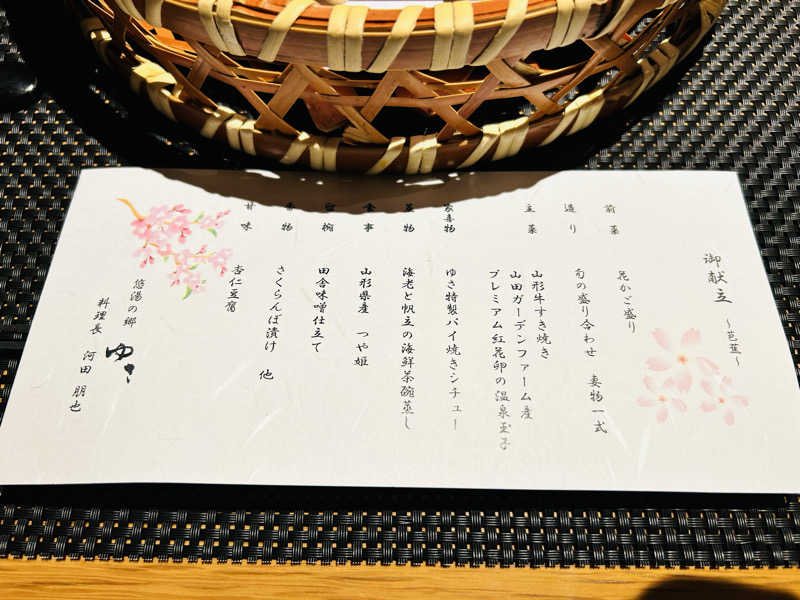 御献立 ~芭蕉~
前菜 花かご盛り
造り 旬の盛り合わせ 妻物一式
主菜 山形牛すき焼き
山田ガーデンファーム産
プレミアム紅花卵の温泉玉子
ゆさ特製パイ焼きシチュー
蒸物 海老と帆立の海鮮茶碗蒸し
食事 山形県産 つや姫
留椀 田舎味噌仕立て
香物 さくらんぼ漬け 他
甘味 杏仁豆腐
悠湯の郷 ゆさ
料理長 河田 朋也